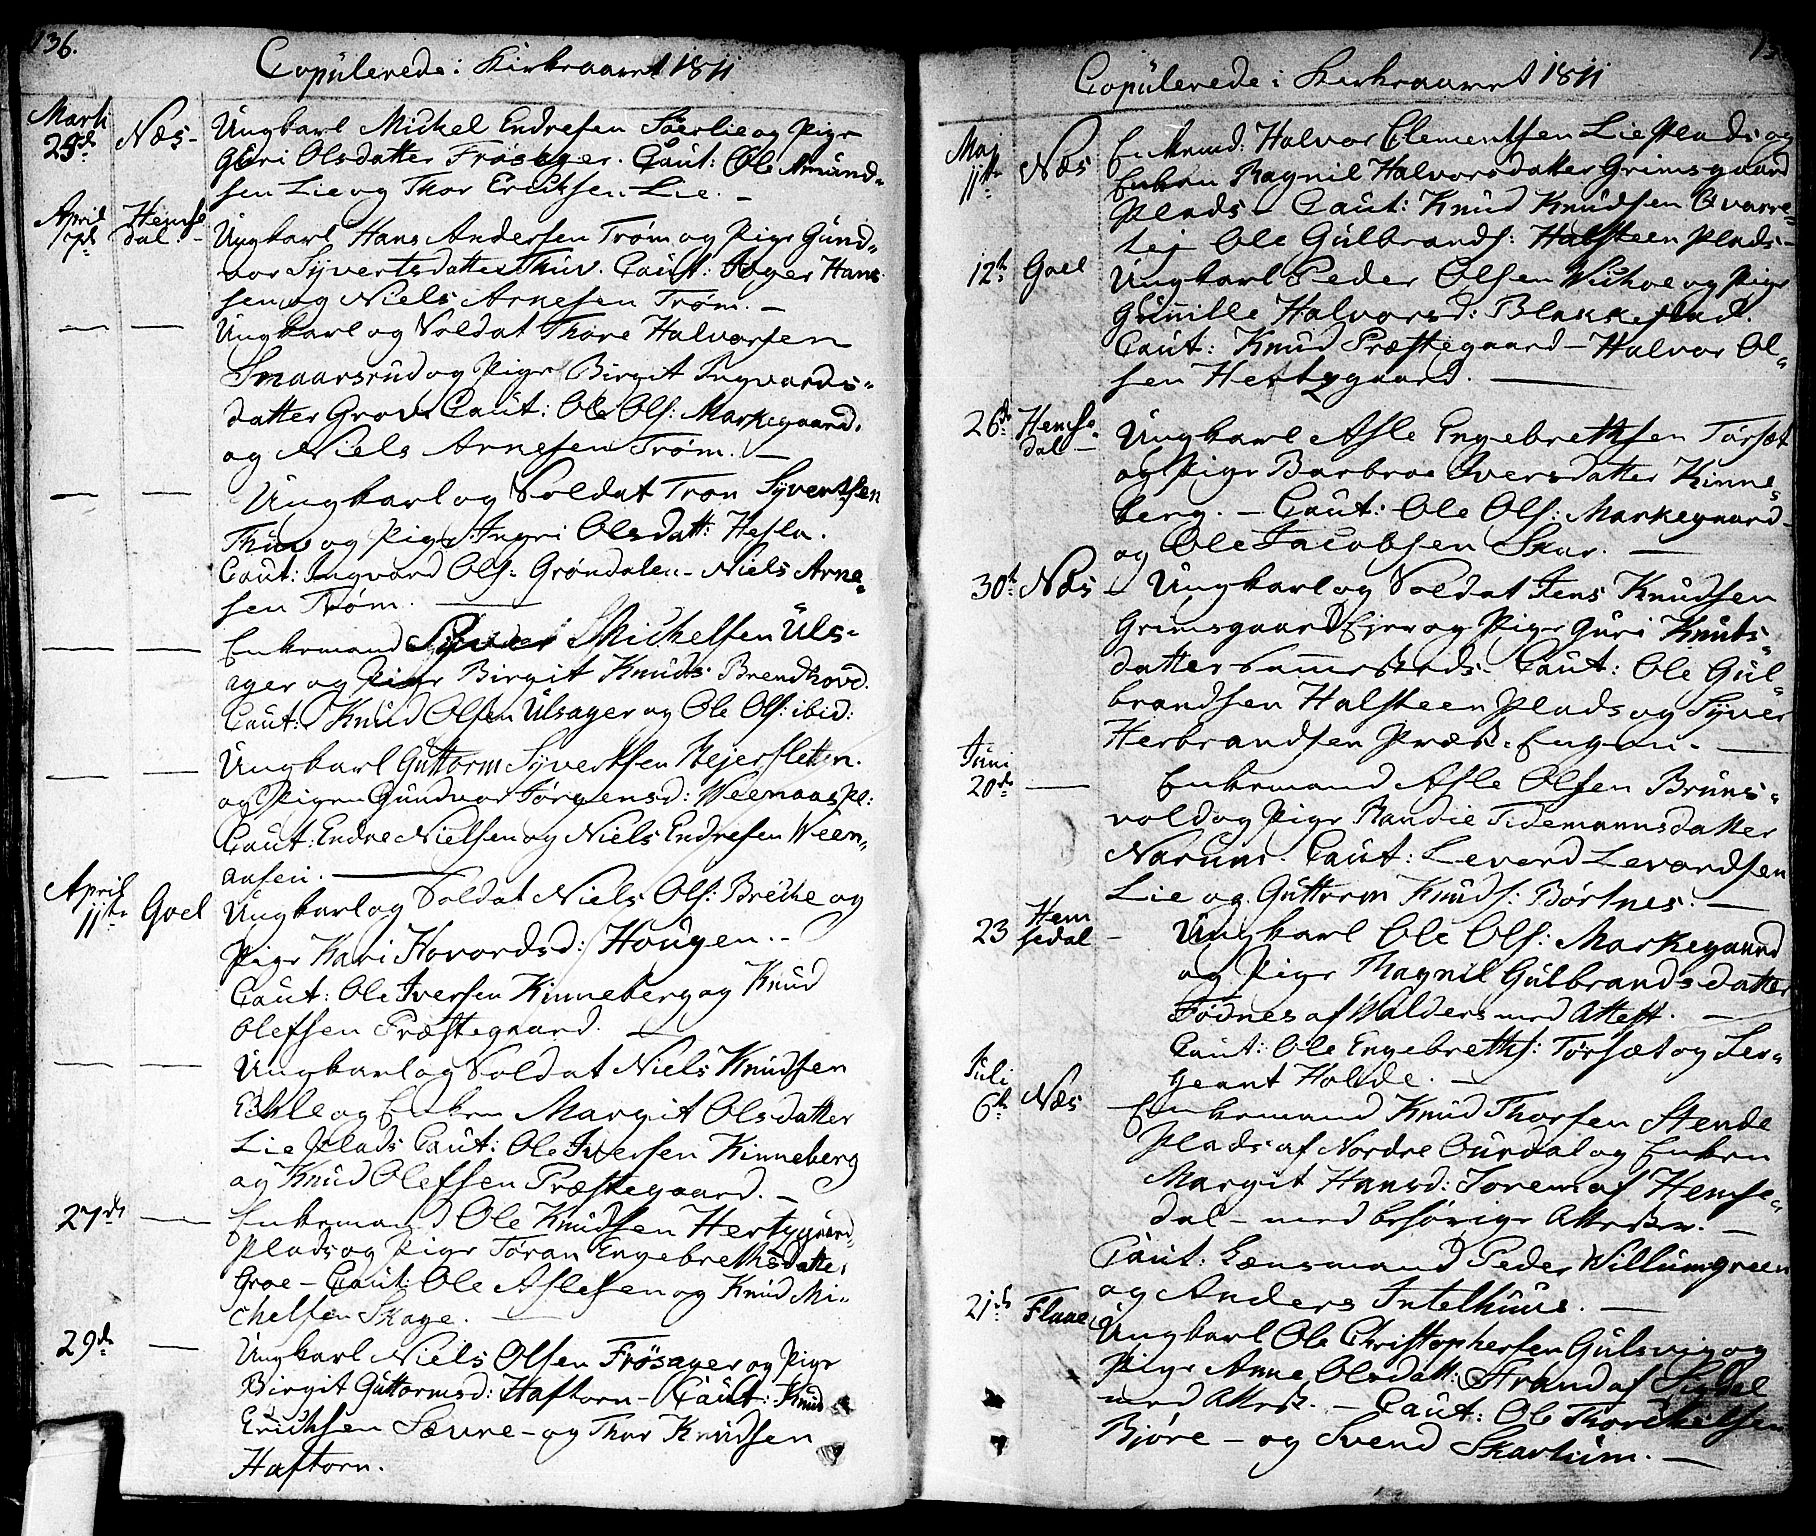 136.
Copulerede i Kirkeaaret 1811
Marti
29d. Næs- Ungkarl Mickel Endresen Søerlie og Pige
Guri Olsdatter Frøsager. Caut: Ole Amund-
sen Lie og Thor Ericksen Lie. -
April Hemse
dal.- Ungkarl Hans Andersen Trøm og Pige Gund-
vor Syvertsdatter Thuv. Caut: Asger Hans
sen og Niels Arnesen Trøm. -
— — Ungkarl og Soldat Thore Halvorsen
Snaarsrud og Pige Birgit Ingvards-
datter Grove Caut: Ole Ols: Markegaard.
og Niels Arnesen Trøm. -
— — Ungkarl og Soldat Tron Syvertsen
Thuv og Pige Ingri Olsdatt: Hesla.
Caut: Ingvard Ols: Grøndalen - Niels Arne-
sen Trøm. —
— — Enkemand Syver Mickelsen Uls-
ager og Pige Birgit Knuds Brendhovd.
Caut: Knud Olsen Ulsager og Ole Ols: ibid:
— — Ungkarl Guttorm Syvertsen Hejersletten.
og Pigen Gundvor Jørgensd: Weenaas Pl:
Caut: Endre Nielsen og Niels Endresen Ween-
aasen. —
April
11te Goel Ungkarl og Soldat Niels Ols: Brecke og
Pige Kari Hovordsd: Hougen. -
Caut: Ole Iversen Kinneberg og Knud
Olefsen Præstegaard. —
— — Ungkarl og Soldat Niels Knudsen
Eckle og Enken Margit Olsdatter
Lie Plads Caut: Ole Iversen Kinneberg
og Knud Olefsen Præstegaard. -
27de — Enkemand Ole Knudsen Hertzgaard-
Plads og Pige Jøran Engebrethsdatter
Groe - Caut: Ole Aslesen og Knud Mi-
chelsen Skage. —
29de — Ungkarl Niels Olsen Frøsager og Pige
Birgit Guttormsd: Haftorn - Caut: Knud
Ericksen Sævre - og Thor Knudsen
Haftorn.
Copulerede i Kirkeaaret 1811
Maj
11te Næs Enkemd: Halvor Clementsen Lie Plads og
Enken Ragnil Halvorsdatter Grimsgaard
Plads - Caut: Knud Knudsen Qvarve-
lej Ole Gulbrands: Halsteen Plads -
12te Goel Ungkarl Peder Olsen Wichoe og Pige
Gunille Halvorsd: Blakkestad.
Caut: Knud Præstegaard - Halvor Ol-
sen Hertzgaard. —
26de Hemse-
dal - Ungkarl Asle Engebrethsen Tørset
og Pige Barbroe Iversdatter Kinne-
berg. - Caut: Ole Ols: Markegaard -
og Ole Jacobsen Skar. —
30te Næs - Ungkarl og Soldat Jens Knudsen
Grimsgaard Ejer og Pige Guri Knuts-
datter sammesteds - Caut: Ole Gul-
brandsen Halsteen Plads og Syver
Herbrandsen Præst: Engen. —
Juni
20de — Enkemand Asle Olsen Bruns-
vold og Pige Randie Tidemannsdatter
Narum. Caut: Leverd Levordsen
Lie og Guttorm Knuds: Børtnes. —
23 Hem
sedal - Ungkarl Ole Ols: Markegaard
og Pige Ragnil Gulbrandsdatter
Fødnes af Walders med Attest. —
Caut: Ole Engebreths: Tørset og Ser-
geant Holde. —
Juli
6te Næs Enkemand Knud Thorsen Stende
Plads af Nordre Ourdal og Enken
Margit Hansd: Torem af Hemse-
dal - med behørige Attester. —
Caut: Lænsmand Peder Willumgreen
og Anders Intelhuus. —
21de Flaae Ungkarl Ole Christophersen Gulsvig og
Pige Anne Olsdatt: Strand af Sigdal
med Attest. - Caut: Ole Thorckelsen
Bjøre - og Svend Skarhim. —